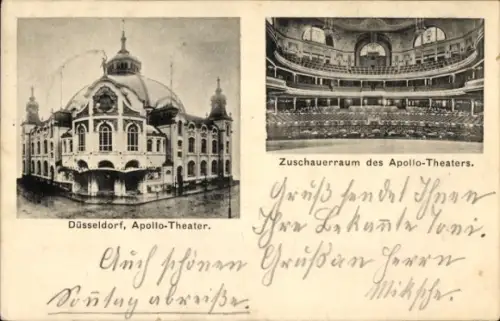 Düsseldorf, Apollo-Theater.
Zuschauerraum des Apollo-Theaters.
Gruß sendet Ihnen
Ihre Bekannte Toni.
Auch schönen Gruß an Herrn
Sonntag abreiße. Miksche.